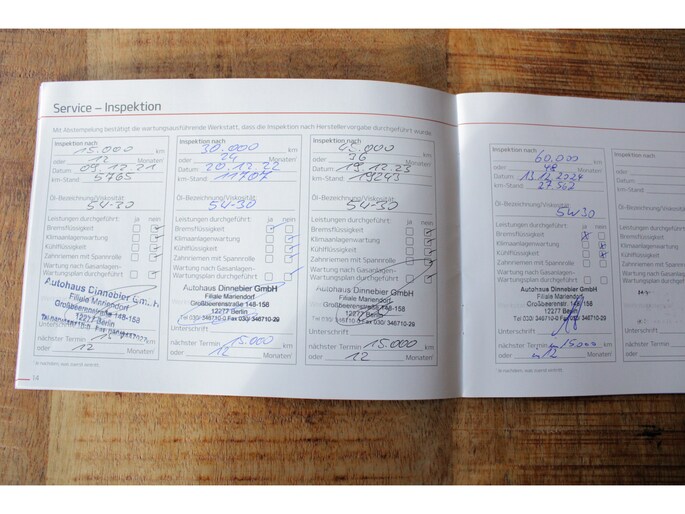 Service – Inspektion
Mit Abstempelung bestätigt die wartungsausführende Werkstatt, dass die Inspektion nach Herstellervorgabe durchgeführt wurde.
Inspektion nach
15.000 km
oder 12 Monaten
Datum 09.12.21
km-Stand 5765
Öl-Bezeichnung/Viskosität
Leistungen durchgeführt: ja nein
Bremsflüssigkeit
Klimaanlagenwartung
Kühlflüssigkeit
Zahnriemen mit Spannrolle
Wartung nach Gasanlagen-
Wartungsplan durchgeführt
Autohaus Dinnebier GmbH
Filiale Mariendorf
Großbeerenstraße 148-158
12277 Berlin
Unterschrift
nächster Termin 15 km
oder 12 Monaten
Inspektion nach
30.000 km
oder 24 Monaten
Datum 20.12.22
km-Stand 11707
Öl-Bezeichnung/Viskosität
Leistungen durchgeführt: ja nein
Bremsflüssigkeit
Klimaanlagenwartung
Kühlflüssigkeit
Zahnriemen mit Spannrolle
Wartung nach Gasanlagen-
Wartungsplan durchgeführt
Autohaus Dinnebier GmbH
Filiale Mariendorf
Großbeerenstraße 148-158
12277 Berlin
Tel 030/ 346710-0 Fax 030/ 346710-29
Unterschrift
nächster Termin 15.000 km
oder 12 Monaten
Inspektion nach
km
oder 36 Monaten
Datum 19.12.23
km-Stand 19243
Öl-Bezeichnung/Viskosität
Leistungen durchgeführt: ja nein
Bremsflüssigkeit
Klimaanlagenwartung
Kühlflüssigkeit
Zahnriemen mit Spannrolle
Wartung nach Gasanlagen-
Wartungsplan durchgeführt
Autohaus Dinnebier GmbH
Filiale Mariendorf
Großbeerenstraße 148-158
12277 Berlin
Tel 030/ 346710-0 Fax 030/ 346710-29
Unterschrift
nächster Termin 15.000 km
oder 12 Monaten
Inspektion nach
60.000 km
oder 48 Monaten
Datum 13.12.2024
km-Stand 27.562
Öl-Bezeichnung/Viskosität
5W30
Leistungen durchgeführt: ja nein
Bremsflüssigkeit
Klimaanlagenwartung
Kühlflüssigkeit
Zahnriemen mit Spannrolle
Wartung nach Gasanlagen-
Wartungsplan durchgeführt
Autohaus Dinnebier GmbH
Filiale Mariendorf
Großbeerenstraße 148-158
12277 Berlin
Unterschrift
nächster Termin 15000 km
oder 12 Monaten
Inspektion nach
oder
Datum
km-Stand